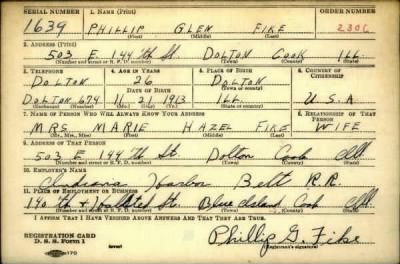 SERIAL NUMBER 1. NAME (Print) ORDER NUMBER
1639 PHILLIP GLEN FIKE 2306
(First) (Middle) (Last)
2. ADDRESS (Print)
503 E. 144th St. DOLTON COOK ILL
(Number and street or R. F. D. number) (Town) (County) (State)
3. TELEPHONE 4. AGE IN YEARS 5. PLACE OF BIRTH 6. COUNTRY OF CITIZENSHIP
DOLTON 26 DOLTON
DATE OF BIRTH (Town or county)
DOLTON 674 11 21 1913 ILL U.S.A
(Exchange) (Number) (Mo.) (Day) (Yr.) (State or country)
7. NAME OF PERSON WHO WILL ALWAYS KNOW YOUR ADDRESS 8. RELATIONSHIP OF THAT PERSON
MRS MARIE HAZEL FIKE WIFE
(Mr., Mrs., Miss) (First) (Middle) (Last)
9. ADDRESS OF THAT PERSON
503 E 144th St. Dolton Cook Ill
(Number and street or R. F. D. number) (Town) (County) (State)
10. EMPLOYER'S NAME
Indiana Harbor Belt R.R.
11. PLACE OF EMPLOYMENT OR BUSINESS
140th & Halsted St. Blue Island Cook Ill.
(Number and street or R. F. D. number) (Town) (County) (State)
I AFFIRM THAT I HAVE VERIFIED ABOVE ANSWERS AND THAT THEY ARE TRUE.
REGISTRATION CARD
D. S. S. Form 1 Phillip G. Fike
(Registrant's signature)